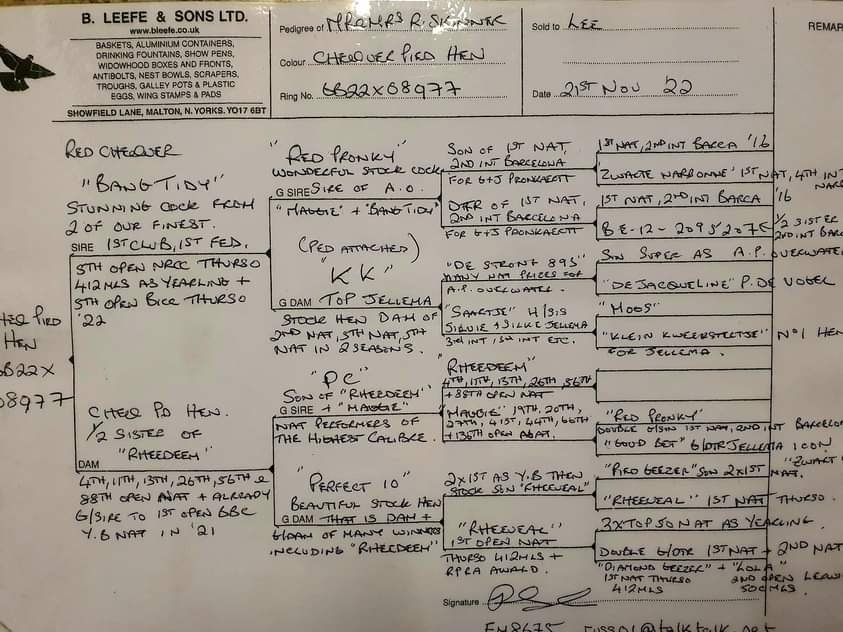 B. LEEFE & SONS LTD.
www.bleefe.co.uk
BASKETS, ALUMINIUM CONTAINERS,
DRINKING FOUNTAINS, SHOW PENS,
WIDOWHOOD BOXES AND FRONTS,
ANTIBOLTS, NEST BOWLS, SCRAPERS,
TROUGHS, GALLEY POTS & PLASTIC
EGGS, WING STAMPS & PADS
SHOWFIELD LANE, MALTON, N.YORKS. YO17 6BT
Pedigree of MR & MRS R. SKINNER
Colour CHEQUER PIED HEN
Ring No. GB22X08977
Sold to LEE
Date 21ST NOV '22
REMAR
HEQ PIED
HEN
GB22X
08977
RED CHEQUER
"BANG TIDY"
STUNNING COCK FROM
2 OF OUR FINEST.
SIRE 1ST CLUB, 1ST FED,
5TH OPEN NRCC THURSO
412MLS AS YEARLING +
5TH OPEN BICC THURSO
'22
CHEQ PD HEN.
1/2 SISTER OF
"RHEEDEEM"
DAM
4TH, 11TH, 13TH, 26TH, 56TH &
88TH OPEN NAT + ALREADY
G/SIRE TO 1ST OPEN BBC
Y.B NAT IN '21
"RED PRONKY"
WONDERFUL STOCK COCK
G SIRE SIRE OF A.O.
"MAGGIE" + "BANG TIDY"
(PED ATTACHED)
"KK"
G DAM TOP JELLEMA
STOCK HEN DAM OF
2ND NAT, 5TH NAT, 5TH
NAT IN 2 SEASONS.
"PC"
SON OF "RHEEDEEM"
G SIRE + "MAGGIE"
NAT PERFORMERS OF
THE HIGHEST CALIBRE.
"PERFECT 10"
BEAUTIFUL STOCK HEN
G DAM THAT IS DAM +
G/DAM OF MANY WINNERS
INCLUDING "RHEEDEEM"
SON OF 1ST NAT,
2ND INT BARCELONA
FOR G+J PRONKAERTT
DTR OF 1ST NAT,
2ND INT BARCELONA
FOR G+J PRONKAERTT
"DE STRONT 895"
MANY NAT PRIZES FOR
A.P. OVERWATER.
"SAARTJE" H/SIS
SILVIE + SILKE JELLEMA
3RD INT, INT ETC.
"RHEEDEEM"
4TH, 11TH, 13TH, 26TH, 56TH
+ 88TH OPEN NAT
"MAGGIE" 19TH, 20TH,
27TH, 41ST, 44TH, 66TH
+ 136TH OPEN NAT.
2X1ST AS Y.B THEN
STOCK SON "RHEEVEAL"
"RHEEVEAL"
1ST OPEN NAT
THURSO 412MLS +
RPRA AWARD.
1ST NAT, 2ND INT BARCA '16
"ZWARTE NARBONNE" 1ST NAT, 4TH INT
NARB
1ST NAT, 2ND INT BARCA '16
BE-12-2095207 1/2 SISTER
2ND INT BARC
SON SUPER AS A.P. OVERWATER
"DE JACQUELINE" P. DE VOGEL
"MOOS"
"KLEIN KWEERSTELTJE" No1 HEN
FOR JELLEMA.
"RED PRONKY"
DOUBLE G/SON 1ST NAT, 2ND INT BARCELON
"GOOD BET" G/DTR JELLEMA ICON
"ZWART
"PIED GEEZER" SON 2X1ST NAT.
"RHEEVEAL" 1ST NAT THURSO.
3XTOP 50 NAT AS YEARLING.
DOUBLE G/DTR 1ST NAT + 2ND NAT
"DIAMOND GEEZER" + "LOLA"
1ST NAT THURSO 2ND OPEN LERW
412MLS 500MLS
Signature